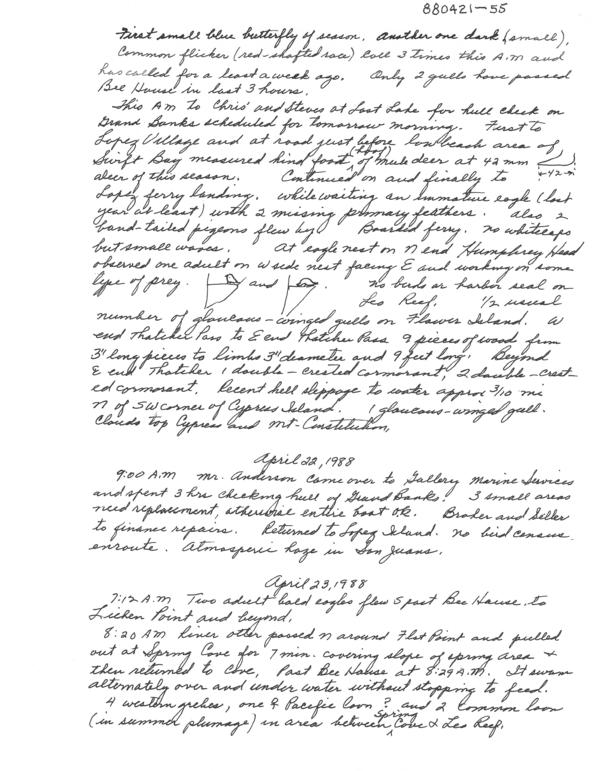 880421-55
First small blue butterfly of season. Another one dark (small).
Common flicker (red-shafted race) call 3 times this A.M and
has called for a least a week ago. Only 2 gulls have passed
Bee House in last 3 hours.
This AM to Chris' and Steves at Lost Lake for hull check on
Grand Banks scheduled for tomorrow morning. First to
Lopez Village and at road just before low beach area of
Swift Bay measured hind foot (hoof) of mule deer at 42 mm
deer of this season. Continued on and finally to ← 42 m
Lopez ferry landing. While waiting an immature eagle (last
year at least) with 2 missing primary feathers. Also 2
band-tailed pigeons flew by Boarded ferry. No whitecaps
but small waves. At eagle nest on N end Humphrey Head
observed one adult on W side nest facing E and working on some
type of prey. and . No birds or harbor seal on
Leo Reef. 1/2 usual
number of glaucous-winged gulls on Flower Island. W
end Thatcher Pass to E end Thatcher Pass 9 pieces of wood from
3" long pieces to limbs 3" diameter and 9 feet long. Beyond
E end Thatcher 1 double-crested cormorant, 2 double-crest-
ed cormorant. Recent hell slippage to water approx 3/10 mi
N of SW corner of Cypress Island. 1 glaucous-winged gull.
Clouds top Cypress and Mt. Constitution.
April 22, 1988
9:00 A.M Mr. Anderson came over to Gallery Marine Services
and spent 3 hrs checking hull of Grand Banks. 3 small areas
need replacement, otherwise entire boat ok. Broker and Seller
to finance repairs. Returned to Lopez Island. No bird census
enroute. Atmosperic haze in San Juans.
April 23, 1988
7:12 A.M Two adult bald eagles flew S past Bee House to
Lichen Point and beyond.
8:20 AM River otter passed N around Flat Point and pulled
out at Spring Cove for 7 min. covering slope of spring area +
then returned to Cove, Past Bee House at 8:29 A.M. It swam
alternately over and under water without stopping to feed.
4 western grebes, one ♀ Pacific loon ? and 2 Common loon
(in summer plumage) in area between Spring Cove & Leo Reef.